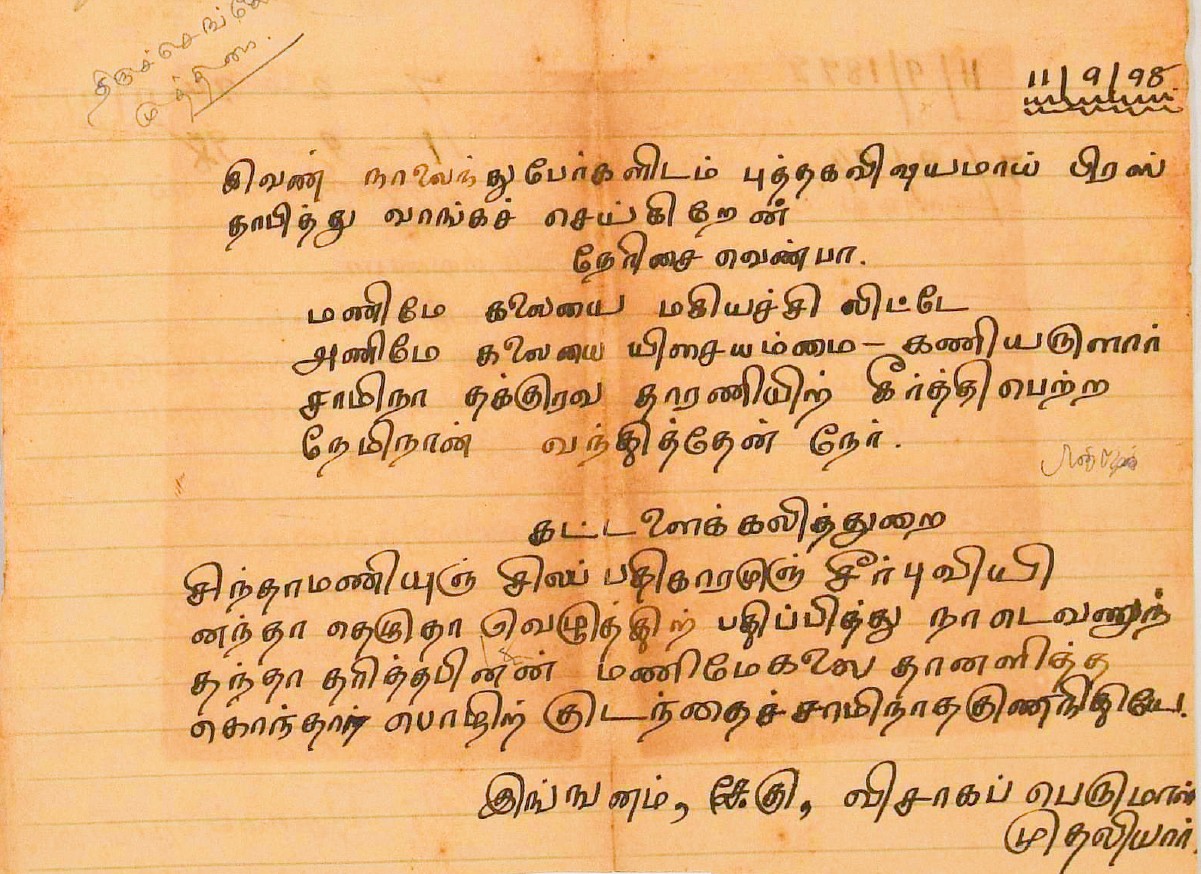 11/9/98
இவண் நாலைந்துபேர்களிடம் புத்தகவிஷயமாய் பிரஸ்
தாபித்து வாங்கச் செய்கிறேன்
நேரிசை வெண்பா.
மணிமே கலையை மகியச்சி லிட்டே
அணிமே கலையை யிசையம்மை – கணியருளார்
சாமிநா தக்குரவ தாரணியிற் கீர்த்திபெற்ற
நேமிநான் வந்தித்தேன் நேர்.
கட்டளைக்கலித்துறை
சிந்தாமணியுஞ் சிலப் பதிகாரமுஞ் சீர்புவியி
னந்தா தெழுதா வெழுத்திற் பதிப்பித்து நாடெவணுந்
தந்தா தரித்தபின் மணிமேகலை தானளித்த
கொந்தார் பொழிற் குடந்தைச்சாமிநாதகுணநிதியே.
இங்ஙனம், கே.கு, விசாகப் பெருமாள்
முதலியார்.